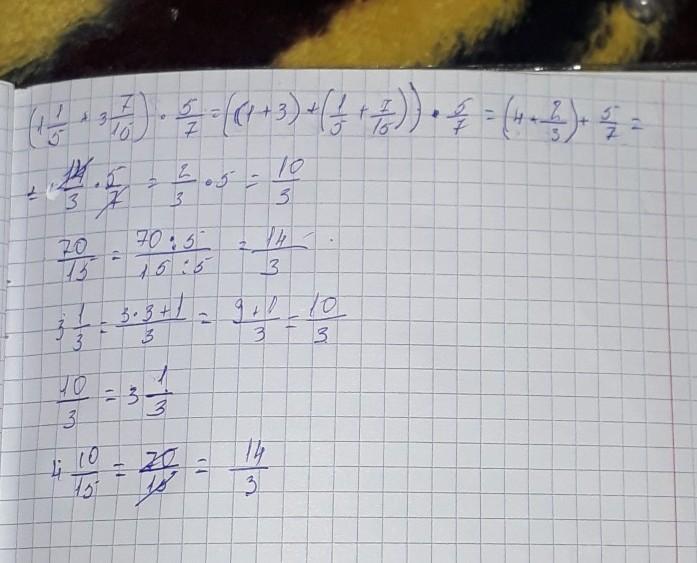 (1 1/5 + 3 7/15) · 5/7 = ((1+3) + (1/5 + 7/15)) · 5/7 = (4 + 2/3) + 5/7 =
= 14/3 · 5/7 = 2/3 · 5 = 10/3
70/15 = 70:5/15:5 = 14/3
3 1/3 = 3·3+1/3 = 9+1/3 = 10/3
10/3 = 3 1/3
4 10/15 = 70/15 = 14/3